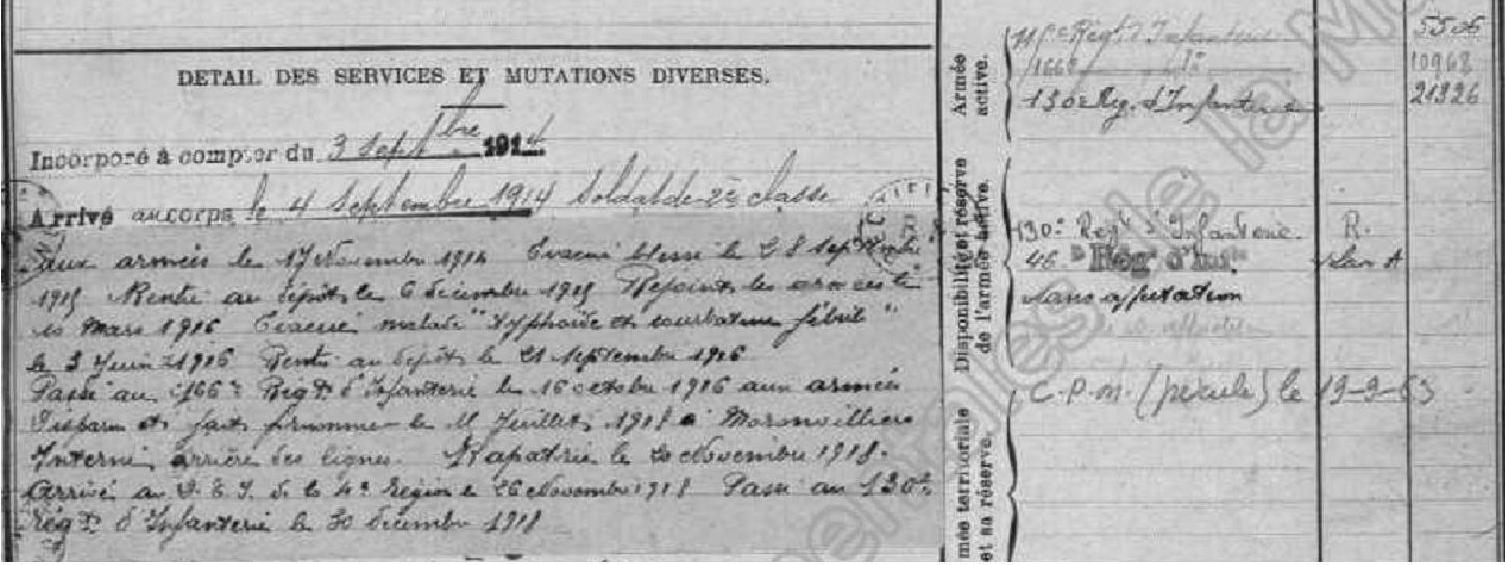 DETAIL DES SERVICES ET MUTATIONS DIVERSES.
Incorporé à compter du 3 Septbre 1914
Arrivé au corps le 4 Septembre 1914 Soldat de 2è classe
aux armées le 17 Novembre 1914 Evacué blessé le 28 Septembre
1915 Rentré au dépôt le 6 décembre 1915 Rejoint les armées le
10 Mars 1916 Evacué malade "typhoïde et courbature fébrile"
le 3 Juin 1916 Rentré au dépôt le 21 Septembre 1916
Passé au 166è Regt d'Infanterie le 16 octobre 1916 aux armées
Disparu et fait prisonnier le 11 Juillet 1918 à Moronvilliers
Interné arrière des lignes. Rapatrié le 20 Novembre 1918.
Arrivé au D. E. I. de la 4e Région le 26 Novembre 1918 Passé au 130è
Régt d'Infanterie le 30 décembre 1918
Armée active.
Regt d'Infanterie
166è
10968
130è Reg. d'Infanterie
21326
Disponibilité et réserve de l'armée active.
130è Regt d'Infanterie. R.
46 Rég d'Inf
sans affectation
mée territoriale et sa réserve.
C.P.M. (pécule) le 19-9-63